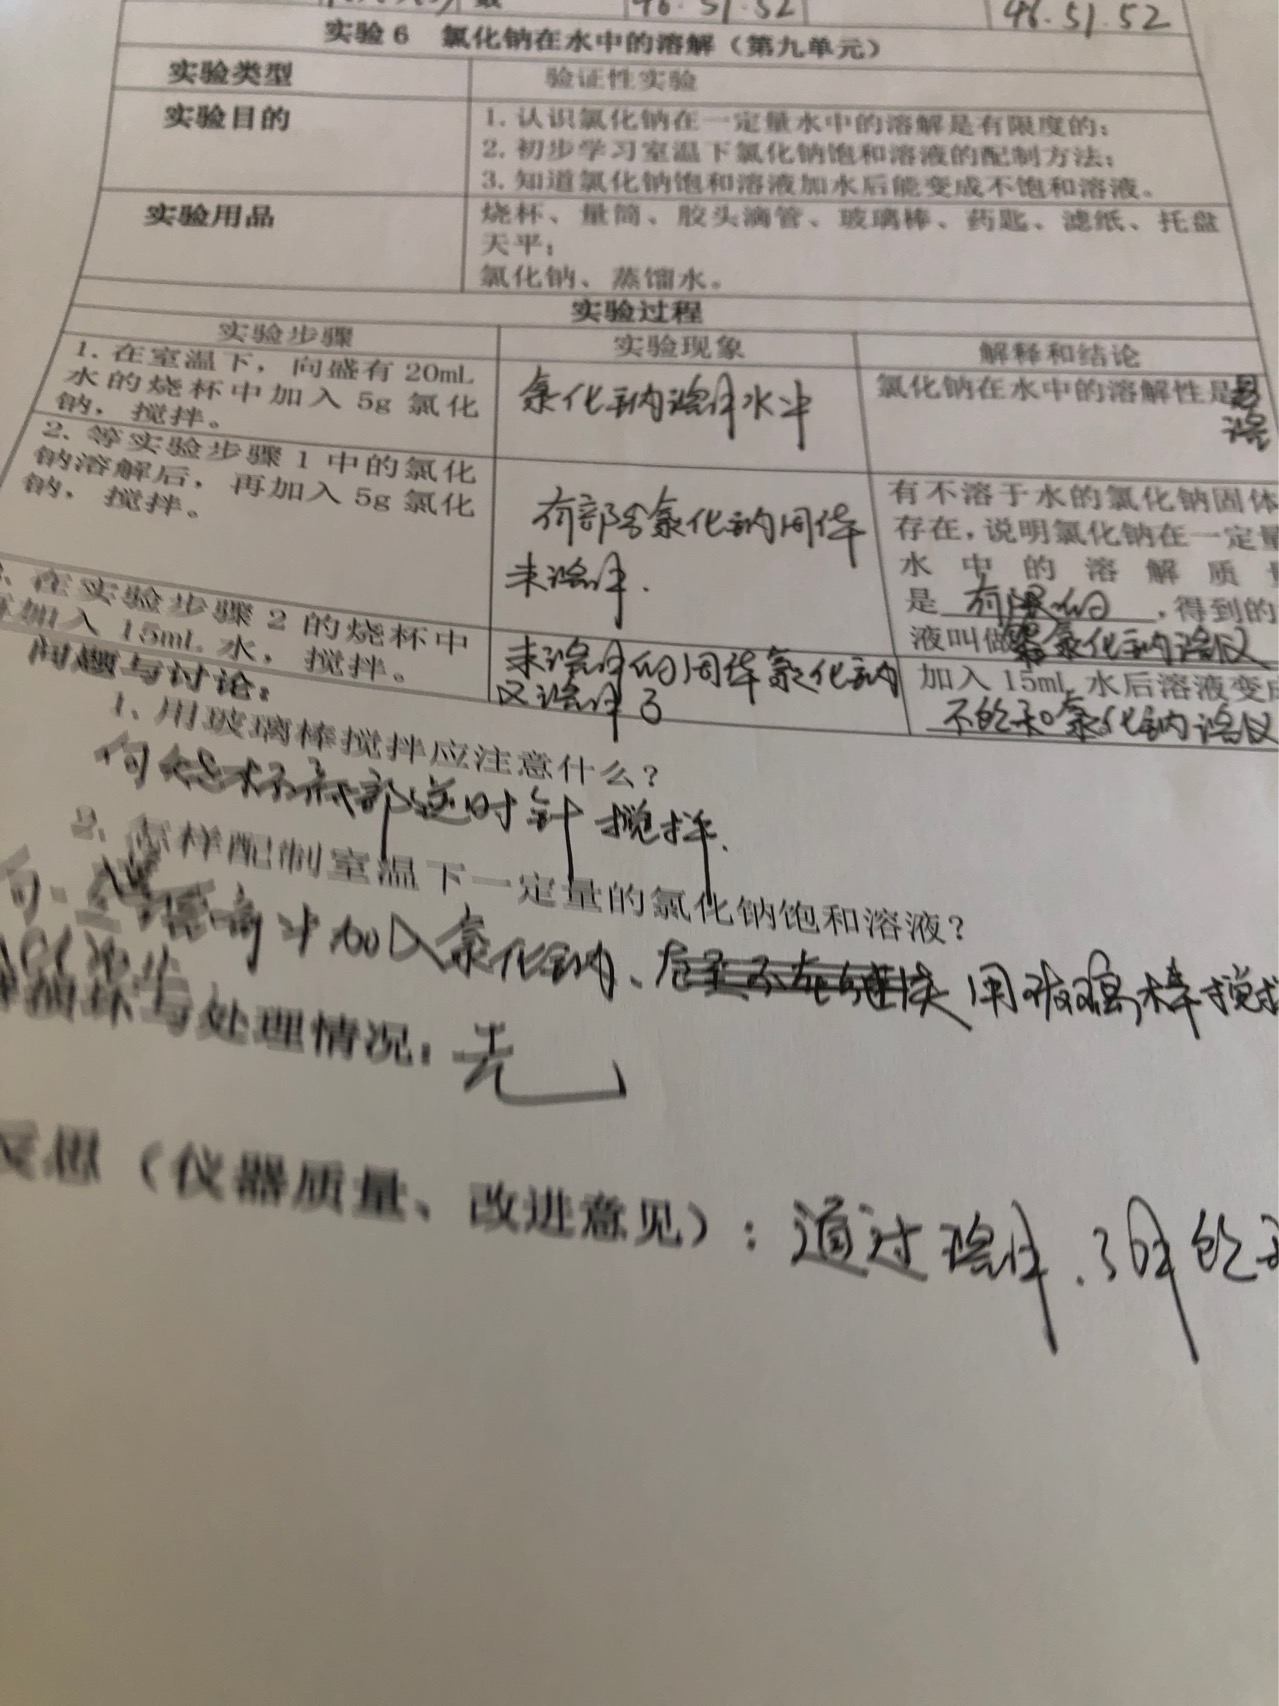 46.51.52
46.51.52
实验6 氯化钠在水中的溶解（第九单元）
实验类型
验证性实验
实验目的
1. 认识氯化钠在一定量水中的溶解是有限度的；
2. 初步学习室温下氯化钠饱和溶液的配制方法；
3. 知道氯化钠饱和溶液加水后能变成不饱和溶液。
实验用品
烧杯、量筒、胶头滴管、玻璃棒、药匙、滤纸、托盘
天平；
氯化钠、蒸馏水。
实验过程
实验步骤
实验现象
解释和结论
1. 在室温下，向盛有 20mL
水的烧杯中加入 5g 氯化
钠，搅拌。
氯化钠溶解水中
氯化钠在水中的溶解性是易
溶
2. 等实验步骤 1 中的氯化
钠溶解后，再加入 5g 氯化
钠，搅拌。
有部分氯化钠固体
未溶解.
有不溶于水的氯化钠固体
存在，说明氯化钠在一定量
水中的溶解质
是 有限的 ，得到的
液叫做 氯化钠溶液
. 在实验步骤 2 的烧杯中
再加入 15mL 水，搅拌。
未溶解的固体氯化钠
又溶解了
加入 15mL 水后溶液变成
不饱和氯化钠溶液
问题与讨论：
1. 用玻璃棒搅拌应注意什么？
向烧杯底部逆时针搅拌.
2. 怎样配制室温下一定量的氯化钠饱和溶液？
中加入氯化钠、用玻璃棒搅拌
与处理情况：无
反思（仪器质量、改进意见）：通过溶解.了解饱和